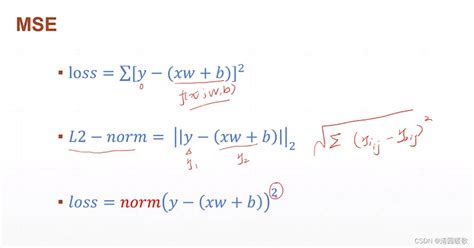 MSE
▪ loss = Σ[y − (xw + b)]²
f(x; w, b)
▪ L2 − norm = ||y − (xw + b)||₂ √Σ (y₁ᵢⱼ − y₂ᵢⱼ)²
y₁ y₂
▪ loss = norm(y − (xw + b))²